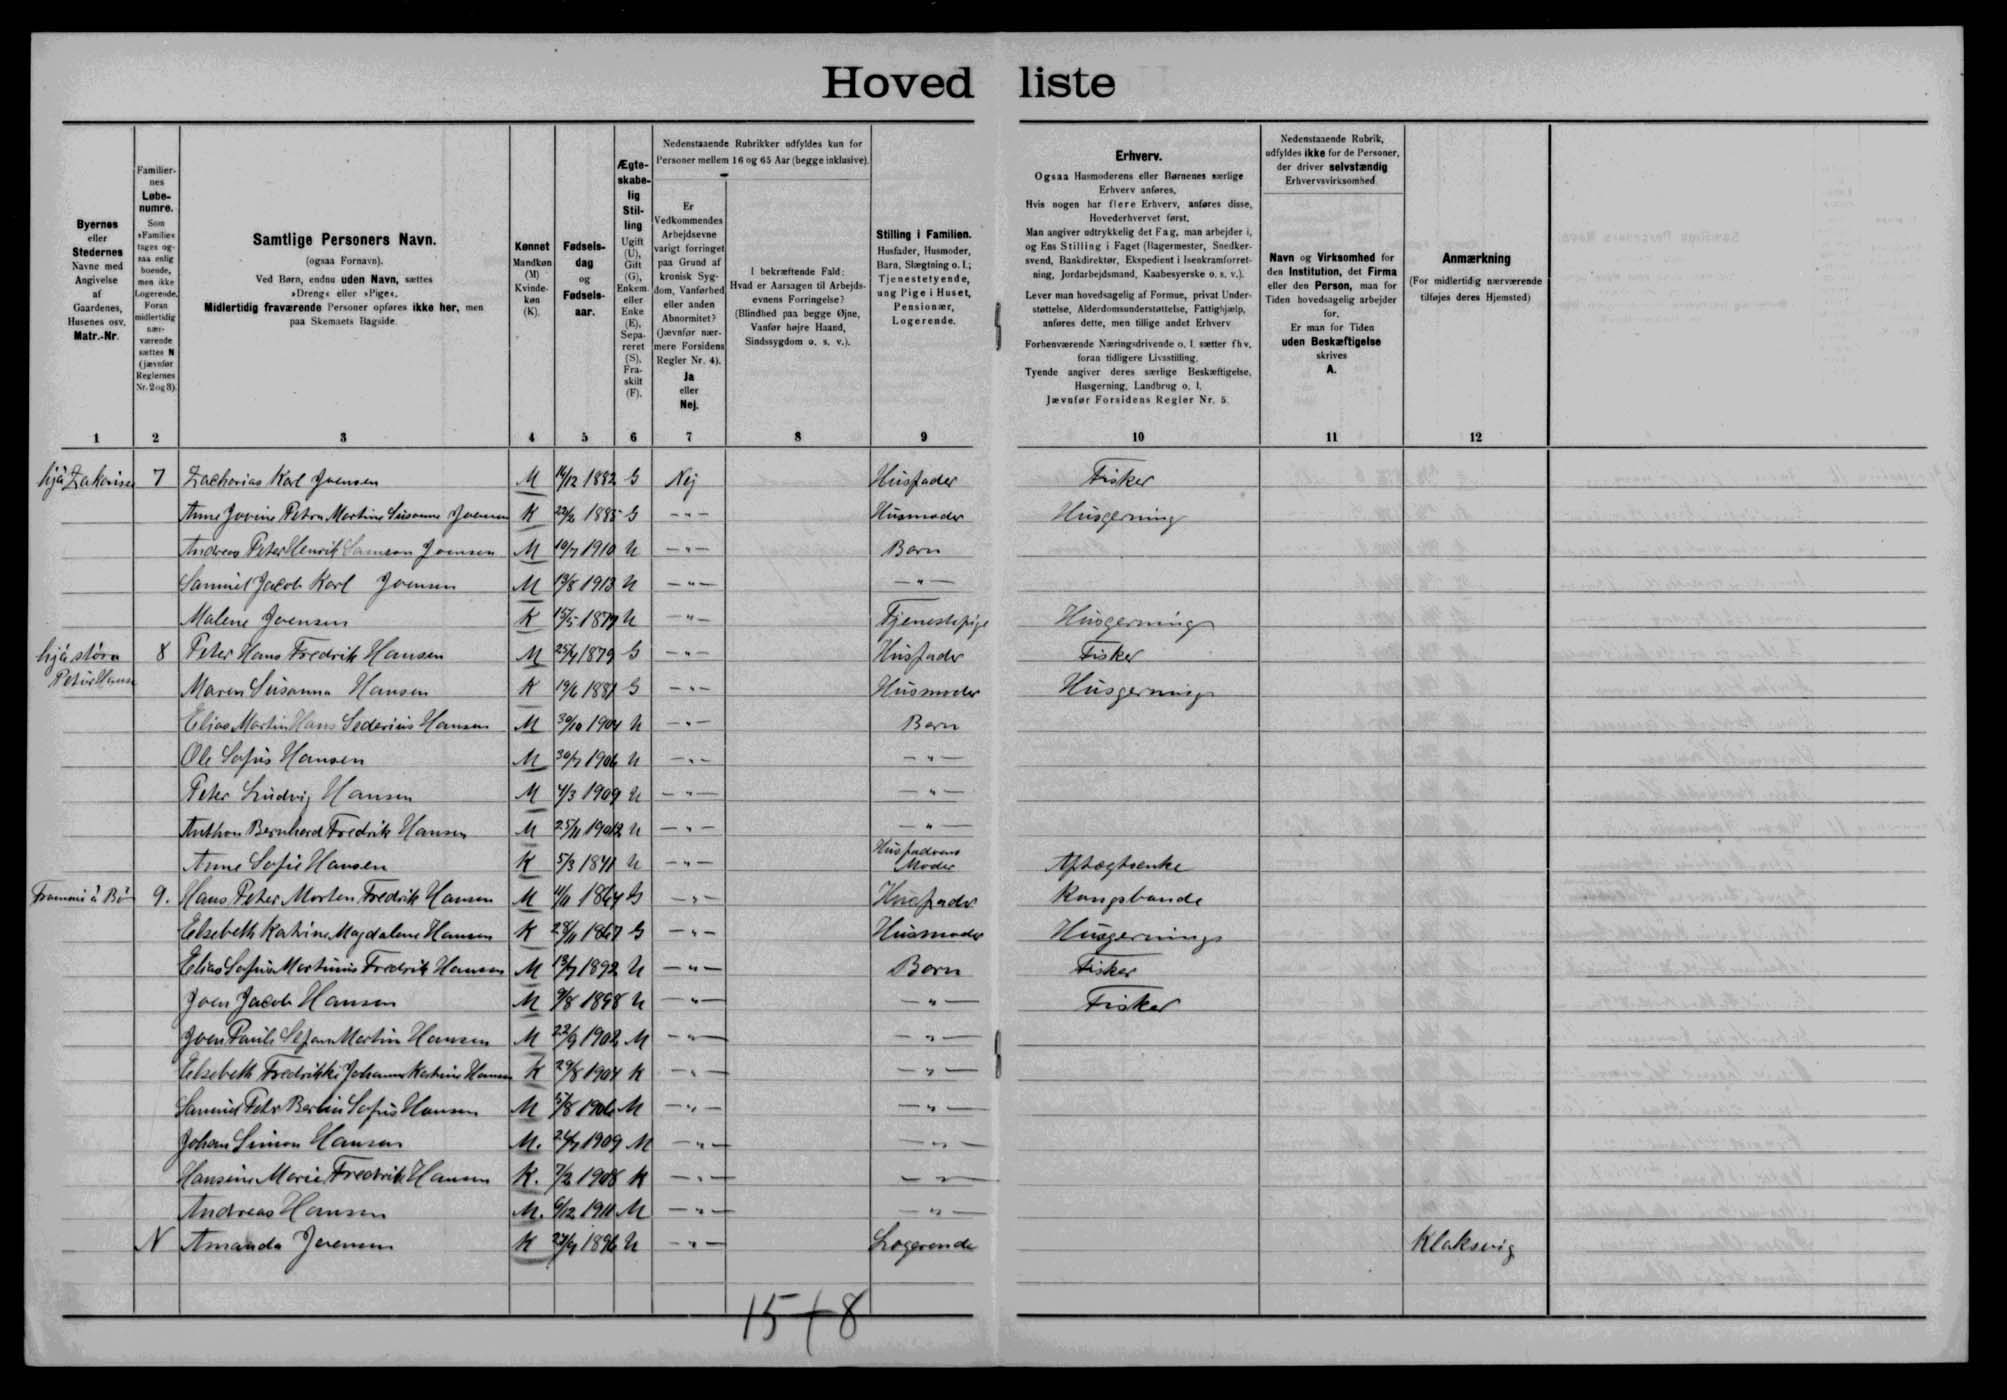 Hovedliste
Byernes
eller
Stedernes
Navne med
Angivelse
af
Gaardenes,
Husenes osv.
Matr.-Nr.
Familier-
nes
Løbe-
numre.
Som
»Familie«
tages og-
saa enlig
boende,
men ikke
Logerende.
Foran
midlertidig
nær-
værende
sættes N
(jævnfør
Reglernes
Nr. 2 og 3).
Samtlige Personers Navn.
(ogsaa Fornavn).
Ved Børn, endnu uden Navn, sættes
»Dreng« eller »Pige«.
Midlertidig fraværende Personer opføres ikke her, men
paa Skemaets Bagside.
Kønnet
Mandkøn
(M)
Kvinde-
køn
(K).
Fødsels-
dag
og
Fødsels-
aar.
Ægte-
skabe-
lig
Stil-
ling
Ugift
(U),
Gift
(G),
Enkem.
eller
Enke
(E),
Sepa-
reret
(S),
Fra-
skilt
(F).
Nedenstaaende Rubrikker udfyldes kun for
Personer mellem 16 og 65 Aar (begge inklusive).
Er
Vedkommendes
Arbejdsevne
varigt forringet
paa Grund af
kronisk Syg-
dom, Vanførhed
eller anden
Abnormitet?
(Jævnfør nær-
mere Forsidens
Regler Nr. 4).
Ja
eller
Nej.
I bekræftende Fald:
Hvad er Aarsagen til Arbejds-
evnens Forringelse?
(Blindhed paa begge Øjne,
Vanfør højre Haand,
Sindssygdom o. s. v.).
Stilling i Familien.
Husfader, Husmoder,
Barn, Slægtning o. l.;
Tjenestetyende,
ung Pige i Huset,
Pensionær,
Logerende.
Erhverv.
Ogsaa Husmoderens eller Børnenes særlige
Erhverv anføres.
Hvis nogen har flere Erhverv, anføres disse,
Hovederhvervet først.
Man angiver udtrykkelig det Fag, man arbejder i,
og Ens Stilling i Faget (Bagermester, Snedker-
svend, Bankdirektør, Ekspedient i Isenkramforret-
ning, Jordarbejdsmand, Kaabesyerske o. s. v.).
Lever man hovedsagelig af Formue, privat Under-
støttelse, Alderdomsunderstøttelse, Fattighjælp,
anføres dette, men tillige andet Erhverv
Forhenværende Næringsdrivende o. l. sætter fhv.
foran tidligere Livsstilling.
Tyende angiver deres særlige Beskæftigelse,
Husgerning, Landbrug o. l.
Jævnfør Forsidens Regler Nr. 5.
Nedenstaaende Rubrik,
udfyldes ikke for de Personer,
der driver selvstændig
Erhvervsvirksomhed.
Navn og Virksomhed for
den Institution, det Firma
eller den Person, man for
Tiden hovedsagelig arbejder
for.
Er man for Tiden
uden Beskæftigelse
skrives
A.
Anmærkning
(For midlertidig nærværende
tilføjes deres Hjemsted)
1 2 3 4 5 6 7 8 9 10 11 12
7 Zacharias Karl Joensen M 14/12 1882 G Nej Husfader Fisker
Anne Jovine Petra Martine Susanne Joensen K 1885 G -"- Husmoder Husgerning
Andreas Peter Henrik Samson Joensen M 1910 U -"- Barn
Samuel Jacob Karl Joensen M 13/8 1913 U -"- -"-
Malene Joensen K 15/5 1879 U -"- Tjenestepige Husgerning
hjá stóra 8 Peter Hans Fredrik Hansen M 1879 G -"- Husfader Fisker
Petur Hans
Maren Susanna Hansen K 19/6 1881 G -"- Husmoder Husgerning
Elias Martin Hans Sederius Hansen M 30/10 1904 U -"- Barn
Ole Sofus Hansen M 1906 U -"- -"-
Peter Ludvig Hansen M 4/3 1909 U -"- -"-
Anthon Bernhard Fredrik Hansen M 25/11 U -"- -"-
Anne Sofie Hansen K 5/3 1841 U -"- Husfaderens Moder Aftægtsenke
9. Hans Peter Morten Fredrik Hansen M 4/11 1864 G -"- Husfader Kongsbonde
Elsebeth Katrine Magdalene Hansen K 28/11 1867 G -"- Husmoder Husgerning
Elias Sofus Martinus Fredrik Hansen M 1892 U -"- Barn Fisker
Joen Jacob Hansen M 9/8 1898 U -"- -"- Fisker
Joen Pauli Martin Hansen M 22/9 1902 M -"- -"-
Elsebeth Fredrikke Johanne Katrine Hansen K 29/8 1904 K -"- -"-
Samuel Peter Sofus Hansen M 5/8 1906 M -"- -"-
Johan Simon Hansen M. 1909 M -"- -"-
Hansine Marie Fredrik Hansen K. 7/2 1908 K -"- -"-
Andreas Hansen M. 6/12 1911 M -"- -"-
N Amanda Joensen K 1896 U -"- Logerende Klaksvig
15+8